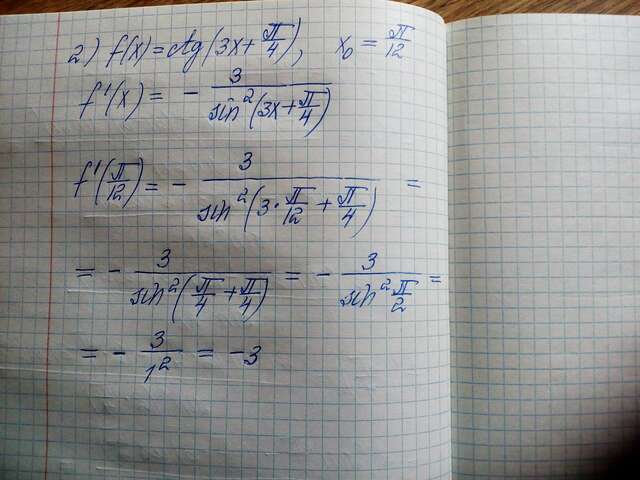 2) f(x) = ctg(3x + π/4), x₀ = π/12
f'(x) = - 3/sin²(3x + π/4)
f'(π/12) = - 3/sin²(3·π/12 + π/4) =
= - 3/sin²(π/4 + π/4) = - 3/sin² π/2 =
= - 3/1² = -3